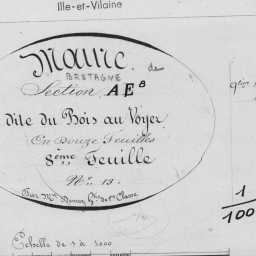 Ille-et-Vilaine
Maure de
BRETAGNE
Section AE B
dite du Bois au Voyer
En douze Feuilles
8ème Feuille
No. 13.
Par Mr. Géo. de 1re Classe
1
100
Echelle de 1 à 1000